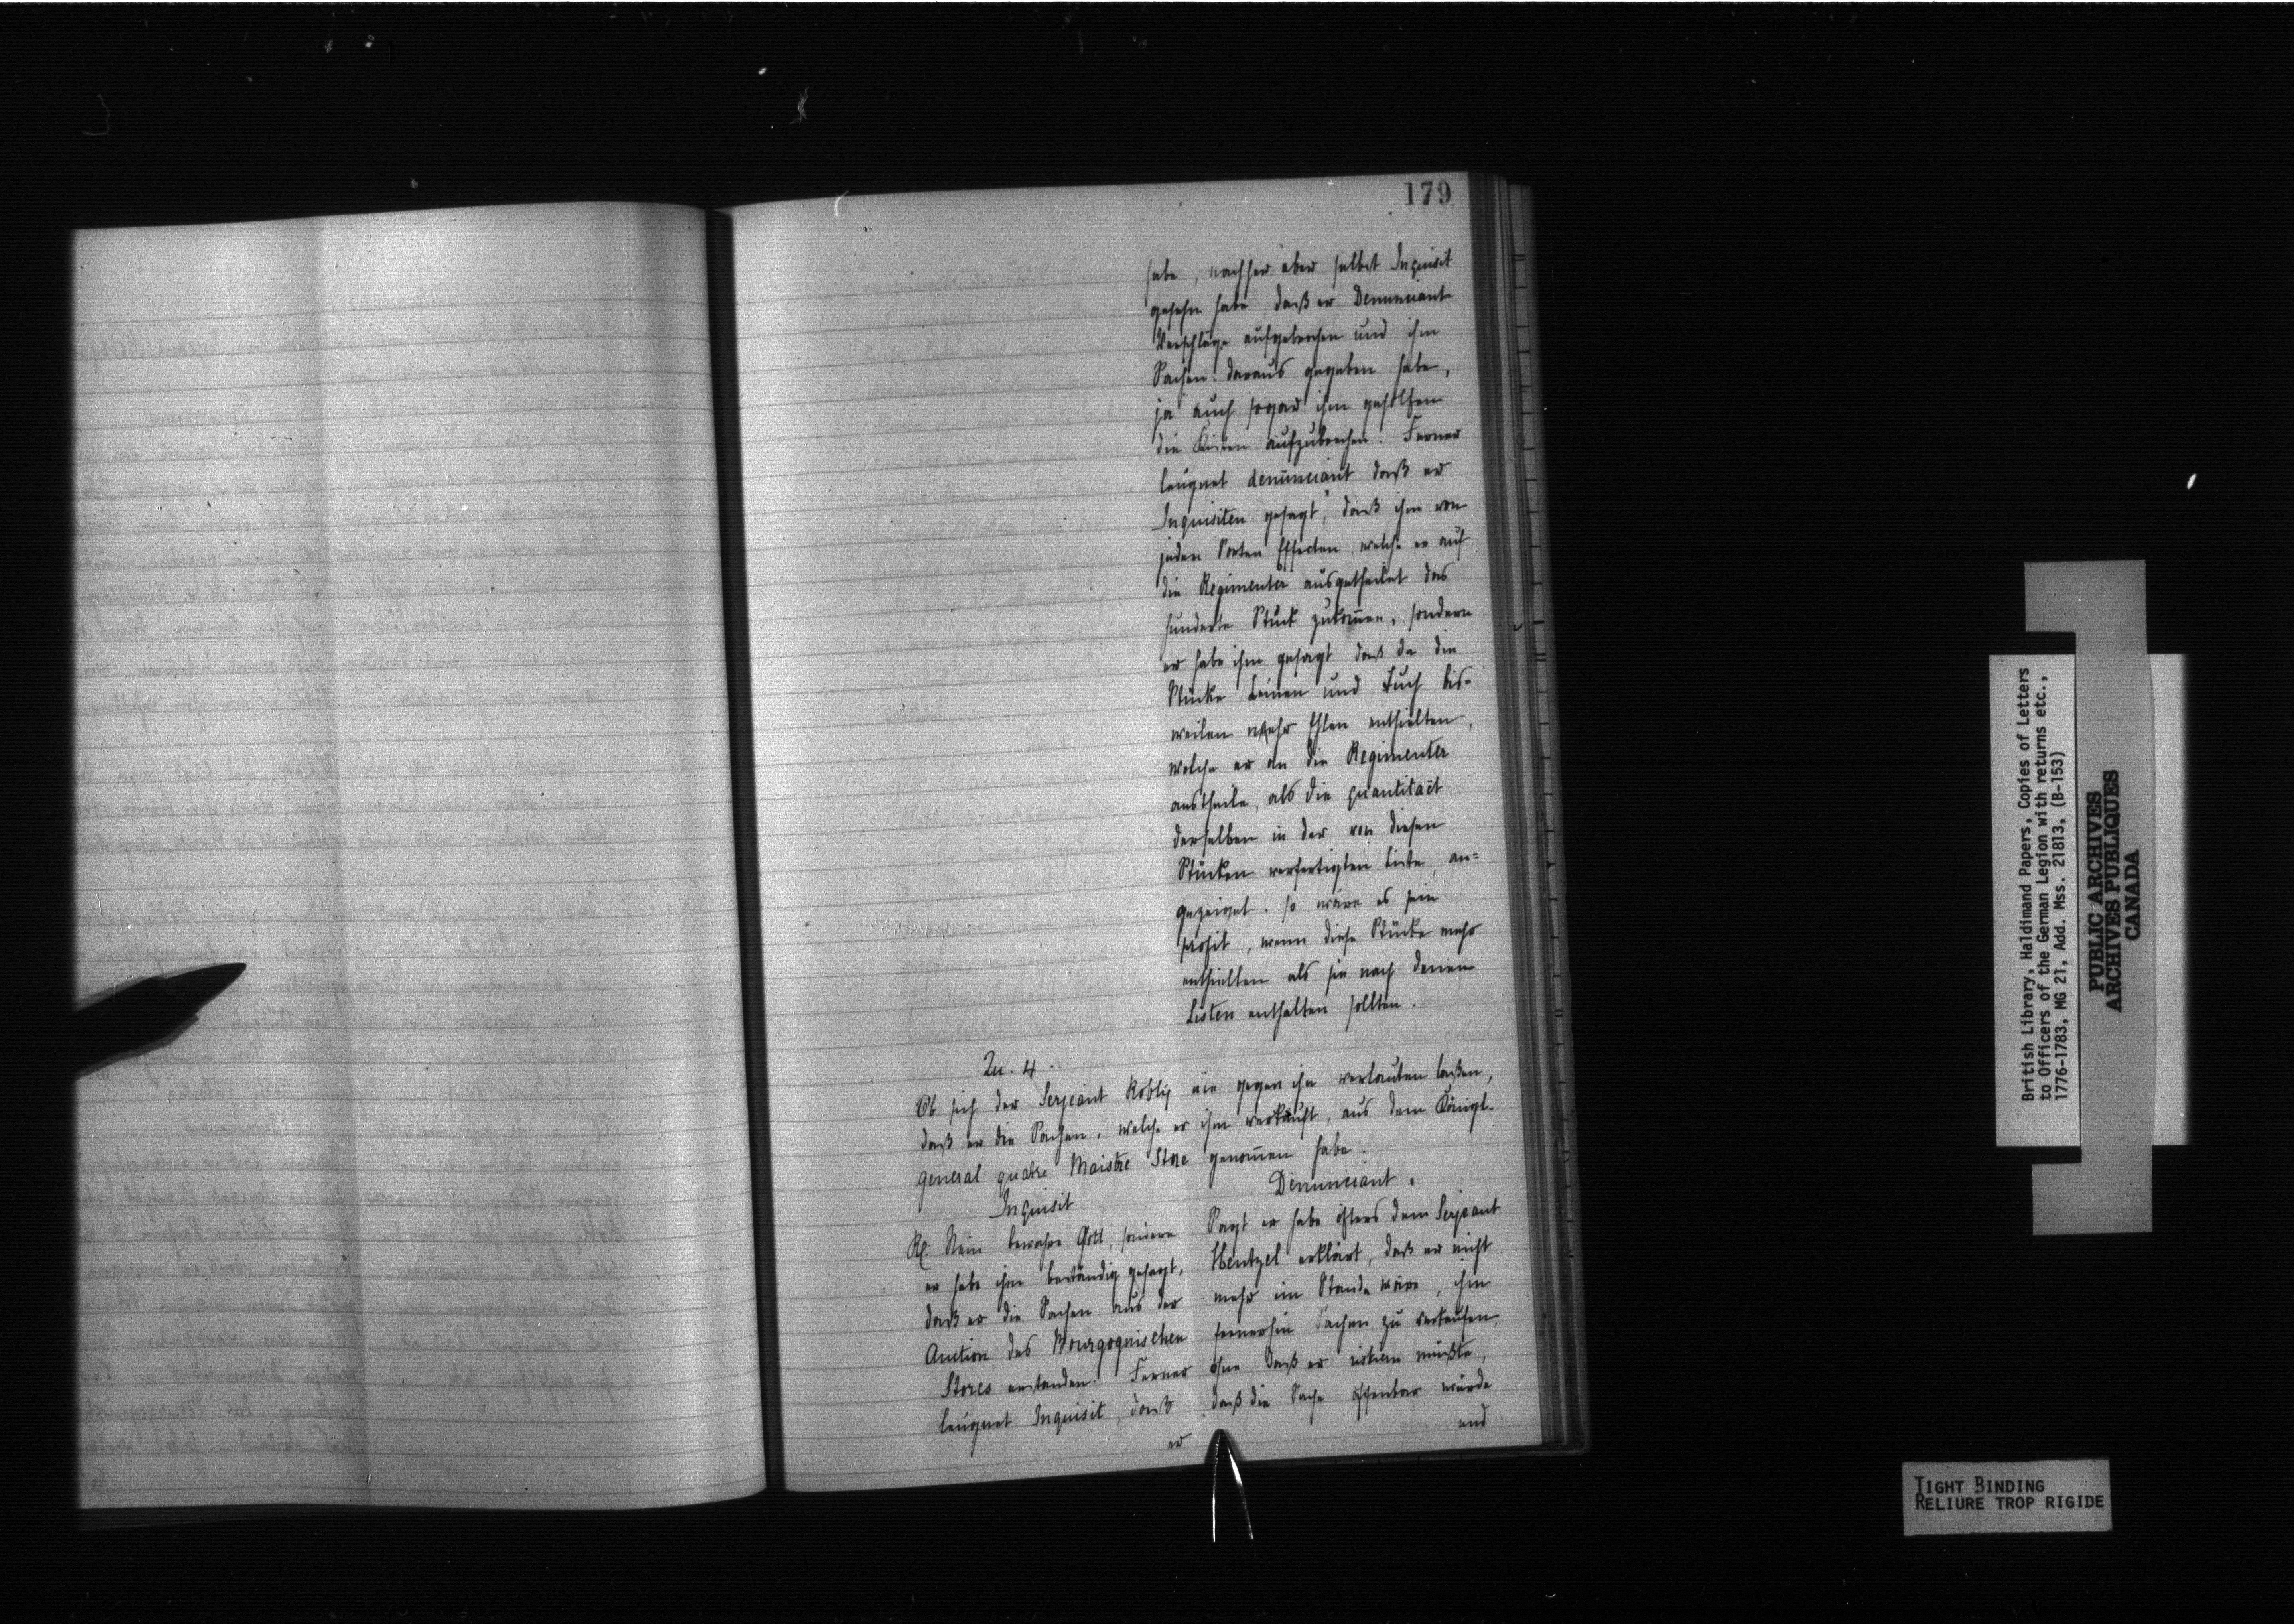 179
habe, nachher aber selbst Inquisit
gesehn habe, daß er Denunciant
Verschläge aufgebrochen und ihm
Sachen daraus gegeben habe,
ja auch sogar ihm geholfen
die Kisten aufzubrechen. Ferner
leugnet denunciant daß er
Inquisiten gesagt, daß ihm von
jeden Sorten Effecten, welche er auf
die Regimenter ausgetheilet das
hunderte Stück zukom̅en, sondern
er habe ihm gesagt daß da die
Stücke Leinen und Tuch bis-
weilen mehr Ehlen enthielten,
welche er an die Regimenter
austheile, als die quantitaët
derselben in der von diesen
Stücken verfertigten Liste, an=
gezeiget. so wäre es sein
profit, wenn diese Stücke mehr
enthielten als sie nach denen
Listen enthalten sollten.
Qu. 4.
Ob sich der Serjeant Roblig nie gegen ihn verlauten laßen,
daß er die Sachen, welche er ihm verkauft, aus dem Königl.
general quatre Maistre Store genom̅en habe.
Inquisit
Rl. Nein bewahre Gott, sondern
er habe ihm beständig gesagt,
daß er die Sachen aus der
Auction des Bourgognischen
Stores erstanden. Ferner
leugnet Inquisit, daß
er
Denunciant.
Sagt er habe öfters dem Serjeant
Hentzel erklärt, daß er nicht
mehr im Stande wäre, ihm
fernerhin Sachen zu verkaufen,
ohne daß er risкiren müßte,
daß die Sache offenbar würde
und
British Library, Haldimand Papers, Copies of Letters
to Officers of the German Legion with returns etc.,
1776-1783, MG 21, Add. Mss. 21813, (B-153)
PUBLIC ARCHIVES
ARCHIVES PUBLIQUES
CANADA
TIGHT BINDING
RELIURE TROP RIGIDE